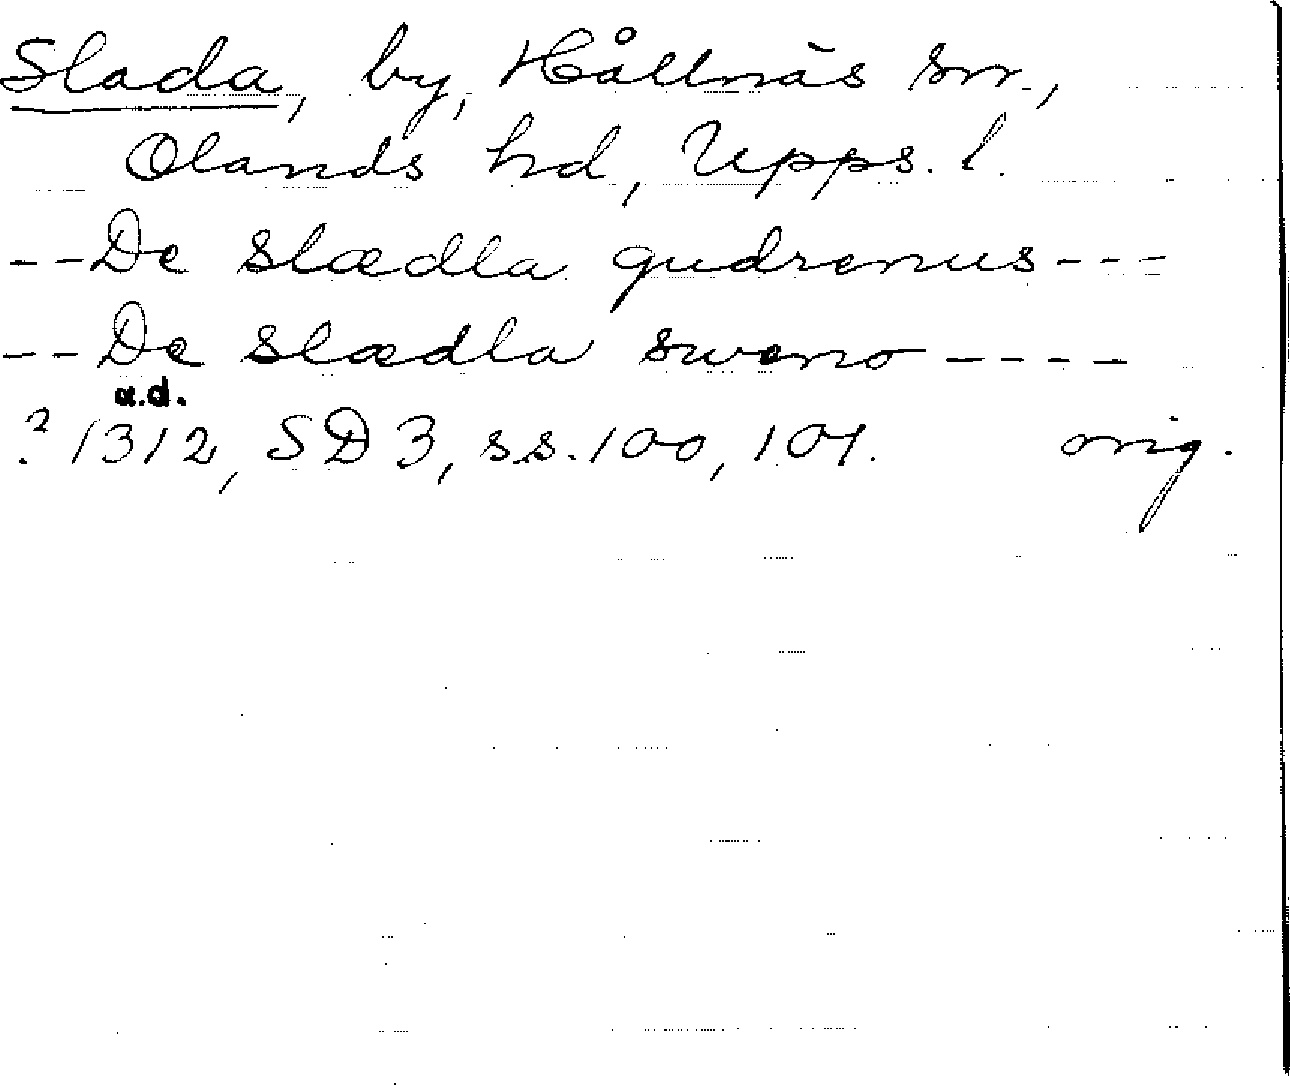 Slada, by, Hållnäs sn.,
Olands hd, Upps. l.
--De slædla gudrenus---
--De slædla sweno----
a.d.
? 1312, SD 3, ss. 100, 101. orig.